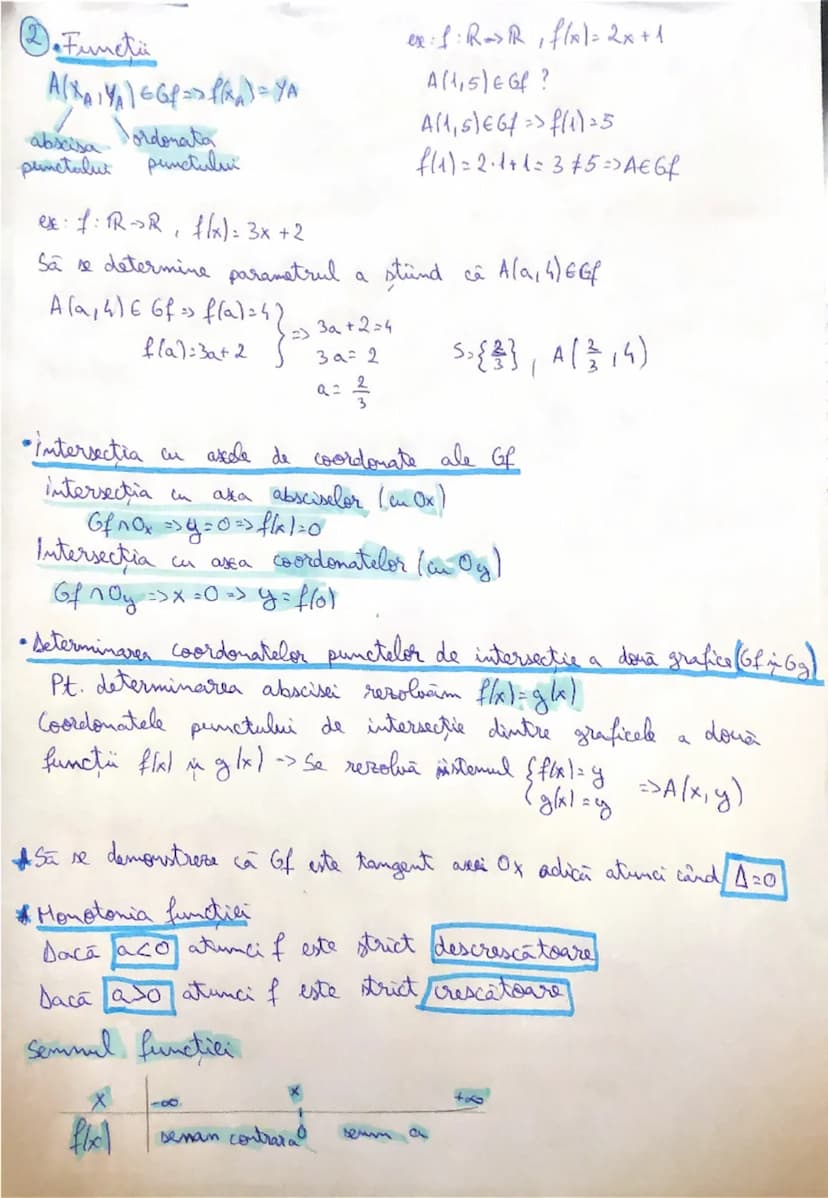 2
• Funcții
A(xA, yA) ∈ Gf => f(xA) = yA
abscisa ordonata
punctului punctului
ex: f: R→R, f(x) = 2x+1
A(1,5) ∈ Gf ?
A(1,5) ∈ Gf => f(1) = 5
f(1) = 2·1+1 = 3 ≠ 5 => A ∈ Gf
ex: f: R→R, f(x) = 3x + 2
Să se determine parametrul a știind că A(a,4) ∈ Gf
A(a,4) ∈ Gf => f(a) = 4 }
f(a) = 3a + 2 } => 3a + 2 = 4
3a = 2
a = 2/3
S = {2/3}, A(2/3, 4)
• Intersecția cu axele de coordonate ale Gf
intersecția cu axa absciselor (cu Ox)
Gf ∩ Ox => y = 0 => f(x) = 0
Intersecția cu axa coordonatelor (cu Oy)
Gf ∩ Oy => x = 0 => y = f(0)
• Determinarea coordonatelor punctelor de intersecție a două grafice (Gf și Gg)
Pt. determinarea abscisei rezolvăm f(x) = g(x)
Coordonatele punctului de intersecție dintre graficele a două
funcții f(x) și g(x) -> Se rezolvă sistemul { f(x) = y
{ g(x) = y => A(x, y)
* Să se demonstreze că Gf este tangent axei Ox adică atunci când Δ=0
* Monotonia funcției
Dacă a<0 atunci f este strict descrescătoare
Dacă a>0 atunci f este strict crescătoare
semnul funcției
x -∞ x +∞
f(x) semn contrar a 0 semn a